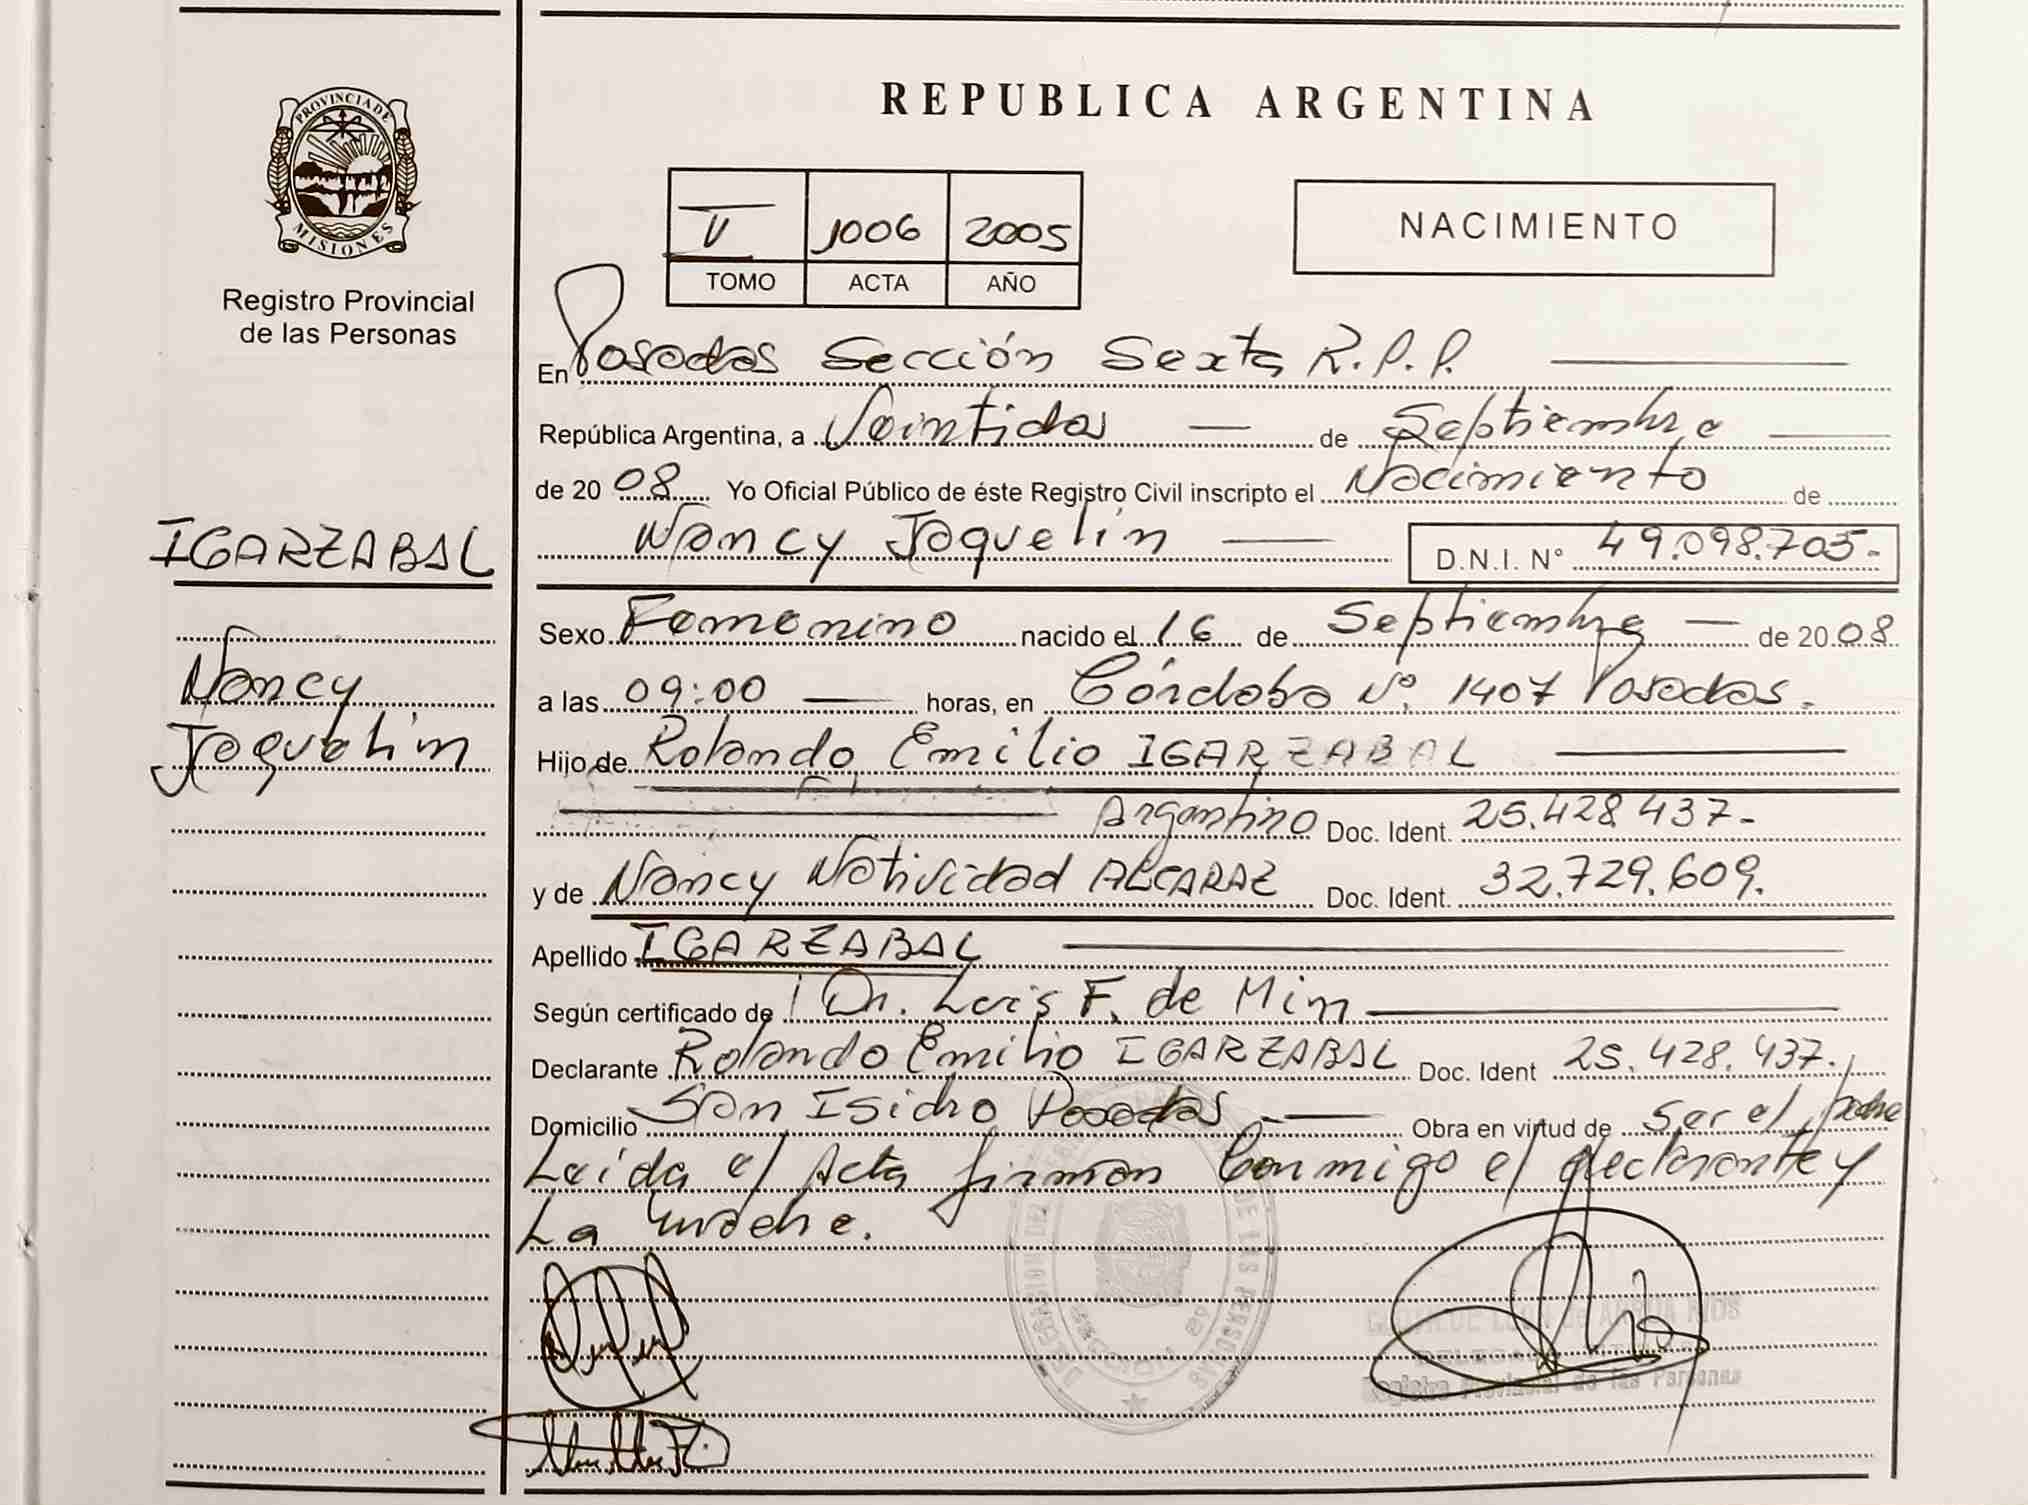 REPUBLICA ARGENTINA
PROVINCIA DE
MISIONES
Registro Provincial
de las Personas
V 1006 2005
TOMO ACTA AÑO
NACIMIENTO
En Posadas Sección Sexta R.P.P.
República Argentina, a Veintidos de Septiembre
de 2008 Yo Oficial Público de éste Registro Civil inscripto el Nacimiento de
Nancy Jaquelin D.N.I. N° 49.098.705.-
IGARZABAL
Sexo Femenino nacido el 16 de Septiembre de 2008
Nancy
a las 09:00 horas, en Córdoba Nº. 1407 Posadas.
Jaquelin
Hijo de Rolando Emilio IGARZABAL
Argentino Doc. Ident. 25.428.437.-
y de Nancy Natividad ALCARAZ Doc. Ident. 32.729.609.
Apellido IGARZABAL
Según certificado de Dr. Luis F. de Mim
Declarante Rolando Emilio IGARZABAL Doc. Ident 25.428.437.
Domicilio San Isidro Posadas Obra en virtud de ser el padre
Leída el Acta firman Conmigo el declarante y
La madre.
DE LAS PERSONAS
Registro Provincial de las Personas